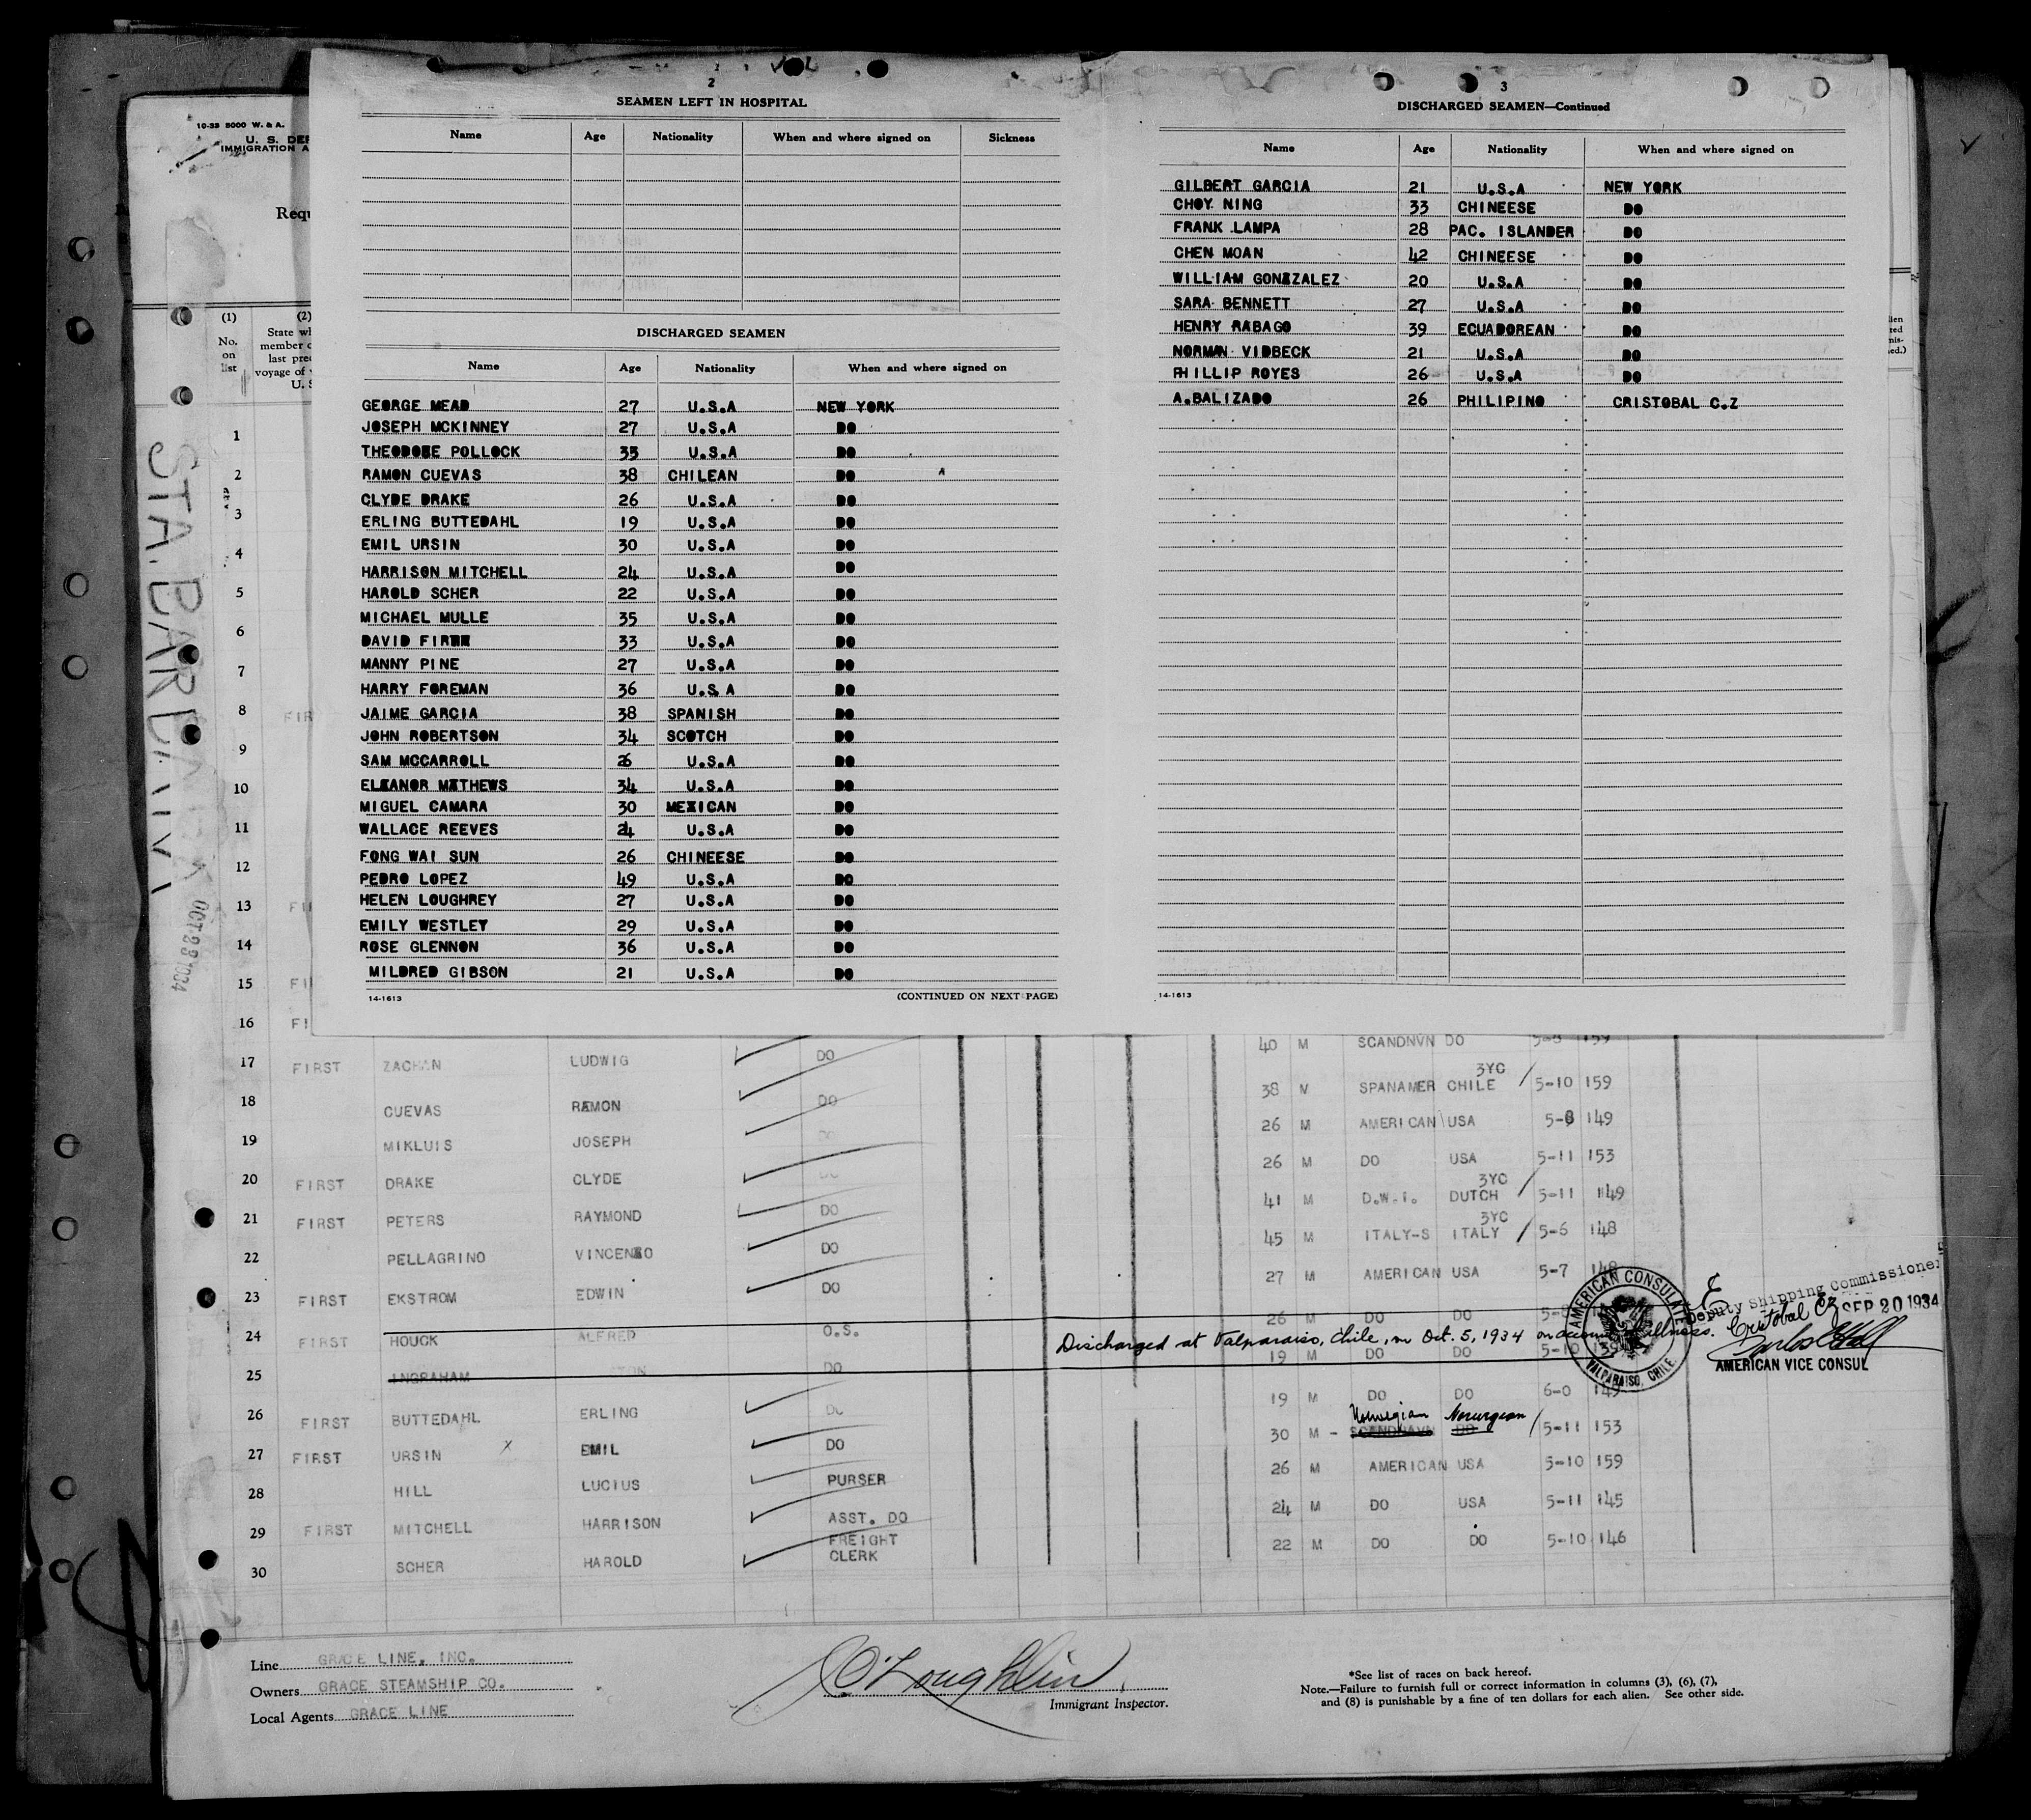 2
SEAMEN LEFT IN HOSPITAL
Name Age Nationality When and where signed on Sickness
DISCHARGED SEAMEN
Name Age Nationality When and where signed on
GEORGE MEAD 27 U.S.A NEW YORK
JOSEPH MCKINNEY 27 U.S.A DO
THEODORE POLLOCK 35 U.S.A DO
RAMON CUEVAS 38 CHILEAN DO
CLYDE DRAKE 26 U.S.A DO
ERLING BUTTEDAHL 19 U.S.A DO
EMIL URSIN 30 U.S.A DO
HARRISON MITCHELL 24 U.S.A DO
HAROLD SCHER 22 U.S.A DO
MICHAEL MULLE 35 U.S.A DO
DAVID 33 U.S.A DO
MANNY PINE 27 U.S.A DO
HARRY FOREMAN 36 U.S.A DO
JAIME GARCIA 38 SPANISH DO
JOHN ROBERTSON 34 SCOTCH DO
SAM MCCARROLL 26 U.S.A DO
ELEANOR MATHEWS 34 U.S.A DO
MIGUEL CAMARA 30 MEXICAN DO
WALLACE REEVES 24 U.S.A DO
FONG WAI SUN 26 CHINEESE DO
PEDRO LOPEZ 49 U.S.A DO
HELEN LOUGHREY 27 U.S.A DO
EMILY WESTLEY 29 U.S.A DO
ROSE GLENNON 36 U.S.A DO
MILDRED GIBSON 21 U.S.A DO
14-1613 (CONTINUED ON NEXT PAGE)
3
DISCHARGED SEAMEN—Continued
Name Age Nationality When and where signed on
GILBERT GARCIA 21 U.S.A NEW YORK
CHOY NING 33 CHINEESE DO
FRANK LAMPA 28 PAC. ISLANDER DO
CHEN MOAN 42 CHINEESE DO
WILLIAM GONZZALEZ 20 U.S.A DO
SARA BENNETT 27 U.S.A DO
HENRY RABAGO 39 ECUADOREAN DO
NORMAN VIDBECK 21 U.S.A DO
PHILLIP ROYES 26 U.S.A DO
A.BALIZADO 26 PHILIPINO CRISTOBAL C.Z
14-1613
10-33 5000 W. & A.
U. S. DEP
IMMIGRATION A
Requ
(1) (2)
No. on list
State wh
member o
last prec
voyage of
U. S
STA. BARBARA
OCT 23 1934
1
2
3
4
5
6
7
8 FIR
9
10
11
12
13 FI
14
15 FI
16 FI
40 M SCANDNVN DO 5-8 159
17 FIRST ZACHAN LUDWIG DO
3YC
38 M SPANAMER CHILE 5-10 159
18 CUEVAS RAMON DO
26 M AMERICAN USA 5-8 149
19 MIKLUIS JOSEPH DO
26 M DO USA 5-11 153
20 FIRST DRAKE CLYDE DO
3YC
41 M D.W.I. DUTCH 5-11 149
21 FIRST PETERS RAYMOND DO
3YC
45 M ITALY-S ITALY 5-6 148
22 PELLAGRINO VINCENZO DO
27 M AMERICAN USA 5-7 148
23 FIRST EKSTROM EDWIN DO
26 M DO DO
24 FIRST HOUCK ALFRED O.S.
Discharged at Valparaiso, Chile, on Oct. 5, 1934 on account of illness.
19 M DO DO 5-10 139
25 INGRAHAM DO
19 M DO DO 6-0 149
26 FIRST BUTTEDAHL ERLING DO
Norwegian Norwegian
30 M - SCANDNAVN DO 5-11 153
27 FIRST URSIN X EMIL DO
26 M AMERICAN USA 5-10 159
28 HILL LUCIUS PURSER
24 M DO USA 5-11 145
29 FIRST MITCHELL HARRISON ASST. DO
22 M DO DO 5-10 146
30 SCHER HAROLD FREIGHT CLERK
AMERICAN CONSULATE
VALPARAISO, CHILE
Deputy Shipping Commissioner
Cristobal CZ SEP 20 1934
AMERICAN VICE CONSUL
Line GRACE LINE, INC.
Owners GRACE STEAMSHIP CO.
Local Agents GRACE LINE
O'Loughlin
Immigrant Inspector.
*See list of races on back hereof.
Note.—Failure to furnish full or correct information in columns (3), (6), (7),
and (8) is punishable by a fine of ten dollars for each alien. See other side.